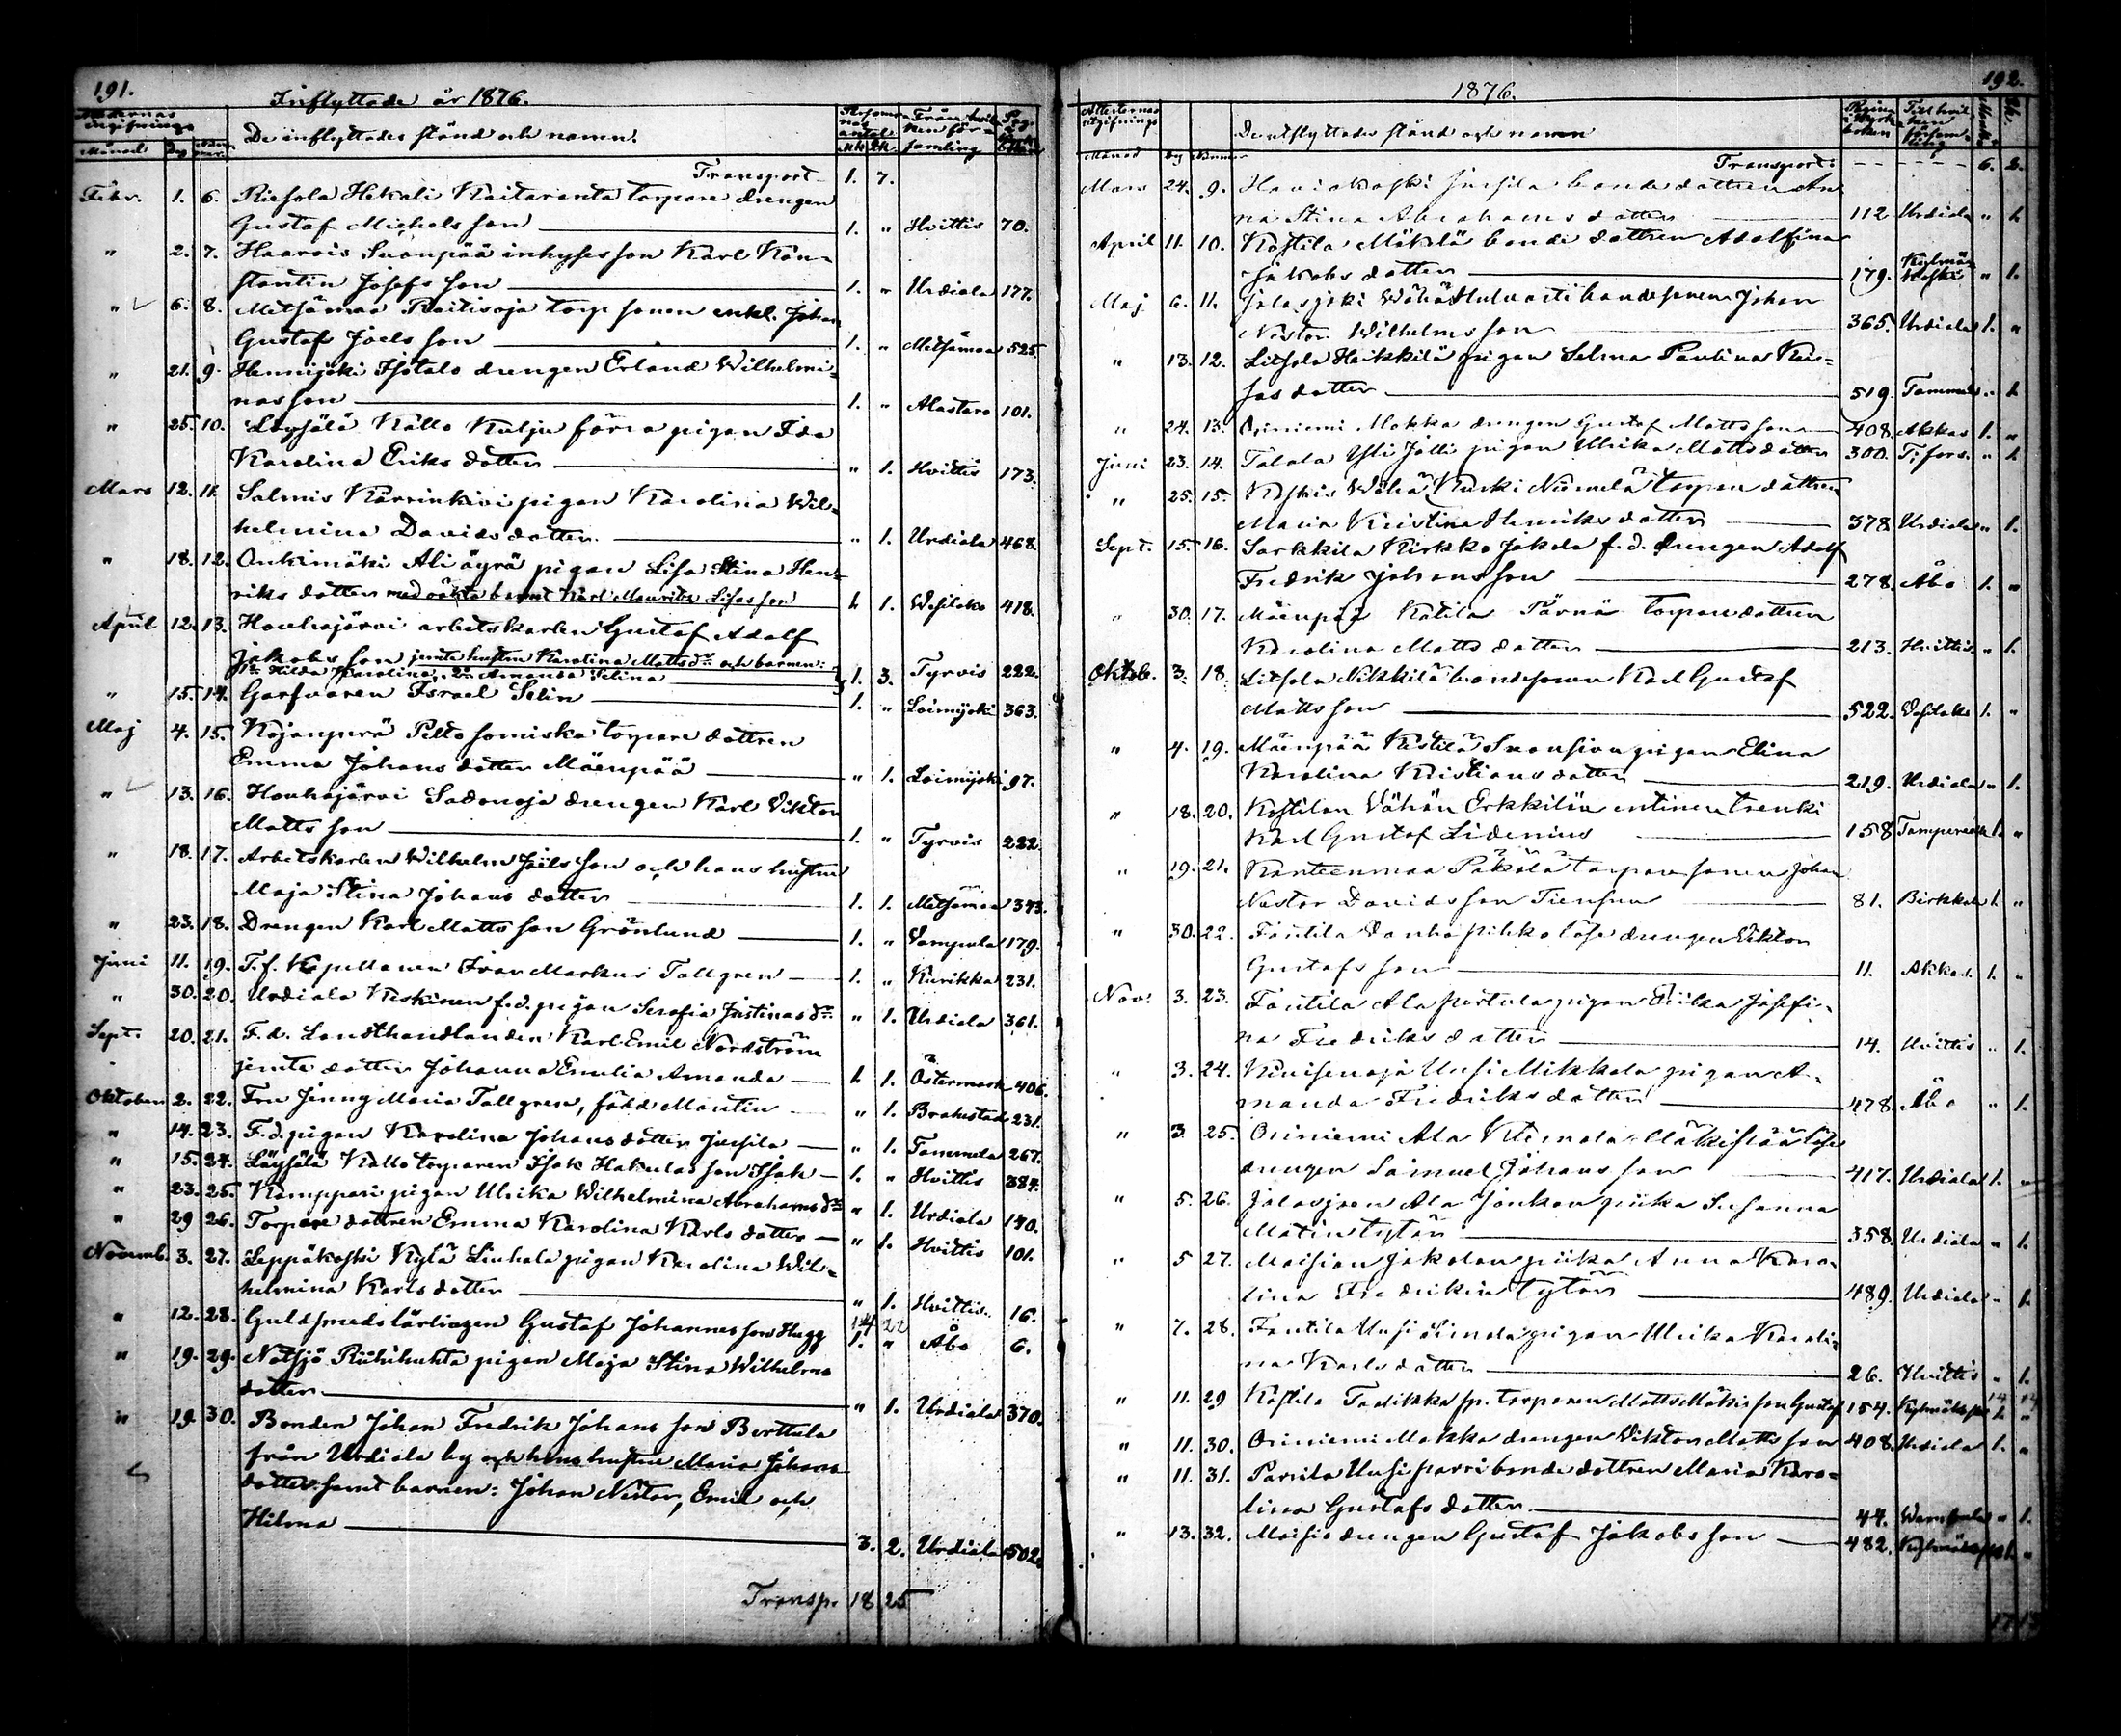 191.
Inflyttade år 1876.
De inflyttades stånd och namn.
Månad
Transport 1. 7.
Febr. 1. 6. Riesola Hekali Raitaranta torpare drengen
Gustaf Michelsson 1. " Hvittis 70.
" 2. 7. Haarois Suonpää inhyses son Karl Kon-
stantin Josefs son 1. " Urdiala 177.
" 6. 8. Metsämaa Raitisoja torp sonen enkl. Johan
Gustaf Joels son 1. " Metsämaa 525.
" 21. 9. Hennijoki Isotalo drengen Erland Wilhelmi-
nas son 1. " Alastaro 101.
" 25. 10. Löysälä Kallo Kulju förra pigan Ida
Karolina Eriks dotter " 1. Hvittis 173.
Mars 12. 11. Salmis Kärrinkivi pigan Karolina Wil-
helmina Davids dotter " 1. Urdiala 468.
" 18. 12. Onkimäki Ali äyrä pigan Lisa Stina Hen-
riks dotter med oäkta barnet Karl Mauritz Lisas son 1. 1. Wesilaks 418.
April 12. 13. Houhajärvi arbetskarlen Gustaf Adolf
Jakobs son jemte hustru Karolina Matts dr och barnen:
1. Hilda Karolina, 2. Amanda Selina 1. 3. Tyrvis 222.
" 15. 14. Garfvaren Israel Selin 1. " Loimijoki 363.
Maj 4. 15. Kojanperä Pelto Somiska torpare dottren
Emma Johans dotter Mäenpää " 1. Loimijoki 97.
" 13. 16. Houhajärvi Sadonoja drengen Karl Viktor
Matts son 1. " Tyrvis 222.
" 18. 17. Arbetskarlen Wilhelm Joels son och hans hustru
Maja Stina Johans dotter 1. 1. Metsämaa 373.
" 23. 18. Drengen Karl Matts son Grönlund 1. " Vampula 179.
Juni 11. 19. T.f. Kapellanen Ivar Markus Tallgren 1. " Kurikka 231.
" 30. 20. Urdiala Keskinen f.d. pigan Serafia Justinas dr " 1. Urdiala 361.
Sept. 20. 21. F.d. Landthandlanden Karl Emil Nordström
jemte dotter Johanna Emilia Amanda 1. 1. Östermark 406.
Oktober 2. 22. Fru Jenny Maria Tallgren, född Montin " 1. Brahestad 231.
" 14. 23. F.d. pigan Karolina Johans dotter Jussila " 1. Tammela 267.
" 15. 24. Löysälä Kallo torparen Isak Hakulas son Isak 1. " Hvittis 384.
" 23. 25. Kamppari pigan Ulrika Wilhelmina Abrahams dr " 1. Urdiala 140.
" 29 26. Torpare dottren Emma Karolina Karls dotter " 1. Hvittis 101.
Novemb. 3. 27. Leppäkoski Kylä Liuhala pigan Karolina Wil-
helmina Karls dotter " 1. Hvittis 16.
14 22
" 12. 28. Guldsmedslärlingen Gustaf Johannes son Hagg 1. " Åbo 6.
" 19. 29. Notsjö Riihihuhta pigan Maja Stina Wilhelms
dotter " 1. Urdiala 370.
" 19. 30. Bonden Johan Fredrik Johans son Berttula
från Urdiala by och hans hustru Maria Johans
dotter samt barnen: Johan Nestor, Emil och
Hilma 3. 2. Urdiala 502.
Transp. 18 25
192.
1876.
De utflyttades stånd och namn
Månad Dag Nummer
Transport: 6. 2.
Mars 24. 9. Haviokoski Jussila bonde dottren An-
na Stina Abrahams dotter 112 Urdiala " 1.
April 11. 10. Kostila Mäkilä bonde dottren Adolfina
Jakobs dotter 179. Kylmäkoski " 1.
Maj 6. 11. Jalasjoki Wähä Hulvasti bondesonen Johan
Nestor Wilhelms son 365. Urdiala 1. "
" 13. 12. Litsola Heikkilä pigan Selma Paulina
sas dotter 519. Tammela " 1.
" 24. 13. Oriniemi Makka drengen Gustaf Matts son 408. Akkas 1. "
Juni 23. 14. Talala Yli Jalli pigan Ulrika Matts dotter 300. T:fors " 1.
" 25. 15. Koskis Wähä Kurki Niemelä torpare dottren
Maria Kristina Henriks dotter 378 Urdiala " 1.
Sept. 15. 16. Sarkkila Kirkko Jakola f.d. drengen Adolf
Fredrik Johans son 278. Åbo 1. "
" 30. 17. Mäenpää Katila Pärnä torparedottren
Karolina Matts dotter 213. Hvittis " 1.
Oktob. 3. 18. Litsola Nikkilä bondesonen Karl Gustaf
Matts son 522. Vesilaks 1. "
" 4. 19. Mäenpää Kestilä Suonsivu pigan Elina
Karolina Kristians dotter 219. Urdiala " 1.
" 18. 20. Kostilan Vähän Erkkilän entinen trenki
Karl Gustaf Lidenius 158 Tampereelle 1. "
" 19. 21. Kanteenmaa Päkölä torpare sonen Johan
Nestor Davids son Tiensuu 81. Birkkala 1. "
" 30. 22. Fäntilä Vanhapihko löse drengen Viktor
Gustafs son 11. Akkas 1. "
Nov. 3. 23. Fäntilä Ala pertula pigan Erika Josefi-
na Fredriks dotter 14. Hvittis " 1.
" 3. 24. Kouisenoja Uusi Mikkola pigan A-
manda Fredriks dotter 478. Åbo " 1.
" 3 25. Oriniemi Ala Klemola Mäkispää löse
drengen Samuel Johans son 417. Urdiala 1. "
" 5. 26. Jalasjoen Ala Jonkan piika Susanna
Matintytär 358. Urdiala " 1.
" 5 27. Maision Jakolan piika Anna Karo-
lina Fredrikin tytär 489. Urdiala " 1.
" 7. 28. Fäntilä Uusi Simola pigan Ulrika Karoli-
na Karls dotter 26. Hvittis " 1.
14 14
" 11. 29 Kostila Tarikka sp. torparen Matts Mattsson Gustaf 154. 1. "
" 11. 30. Oriniemi Makka drengen Viktor Matts son 408. Urdiala 1. "
" 11. 31. Parrila Uusi parri bonde dottren Maria Karo-
lina Gustafs dotter 44. Wampula " 1.
" 13. 32. Maisio drengen Gustaf Jakobs son 482. 1. "
17 15